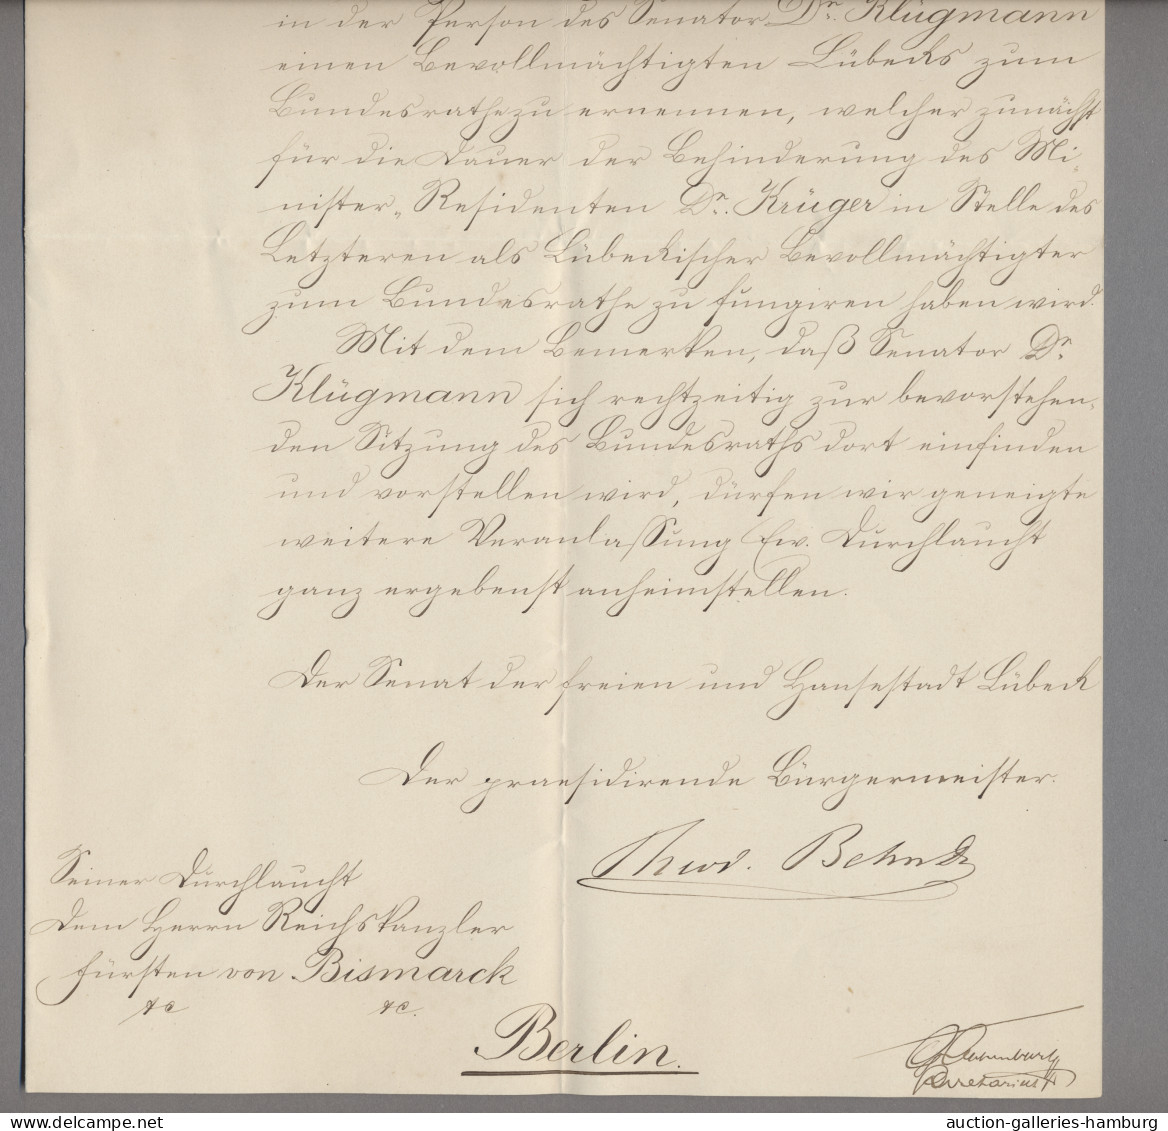 in der Person des Senator Dr. Klügmann
einen Bevollmächtigten Lübecks zum
Bundesrathe zu ernennen, welcher zunächst
für die Dauer der Behinderung des Mi-
nister-Residenten Dr. Krüger in Stelle des
Letzteren als Lübeckischer Bevollmächtigter
zum Bundesrathe zu fungiren haben wird.
Mit dem Bemerken, daß Senator Dr.
Klügmann sich rechtzeitig zur bevorstehen-
den Sitzung des Bundesraths dort einfinden
und vorstellen wird, dürfen wir geneigte
weitere Veranlassung Ew. Durchlaucht
ganz ergebenst anheimstellen.
Der Senat der freien und Hansestadt Lübeck
Der praesidirende Bürgermeister.
Theod. Behn Dr
Seiner Durchlaucht
dem Herrn Reichskanzler
Fürsten von Bismarck
&c &c.
Berlin.
Secretarius
auction-galleries-hamburg